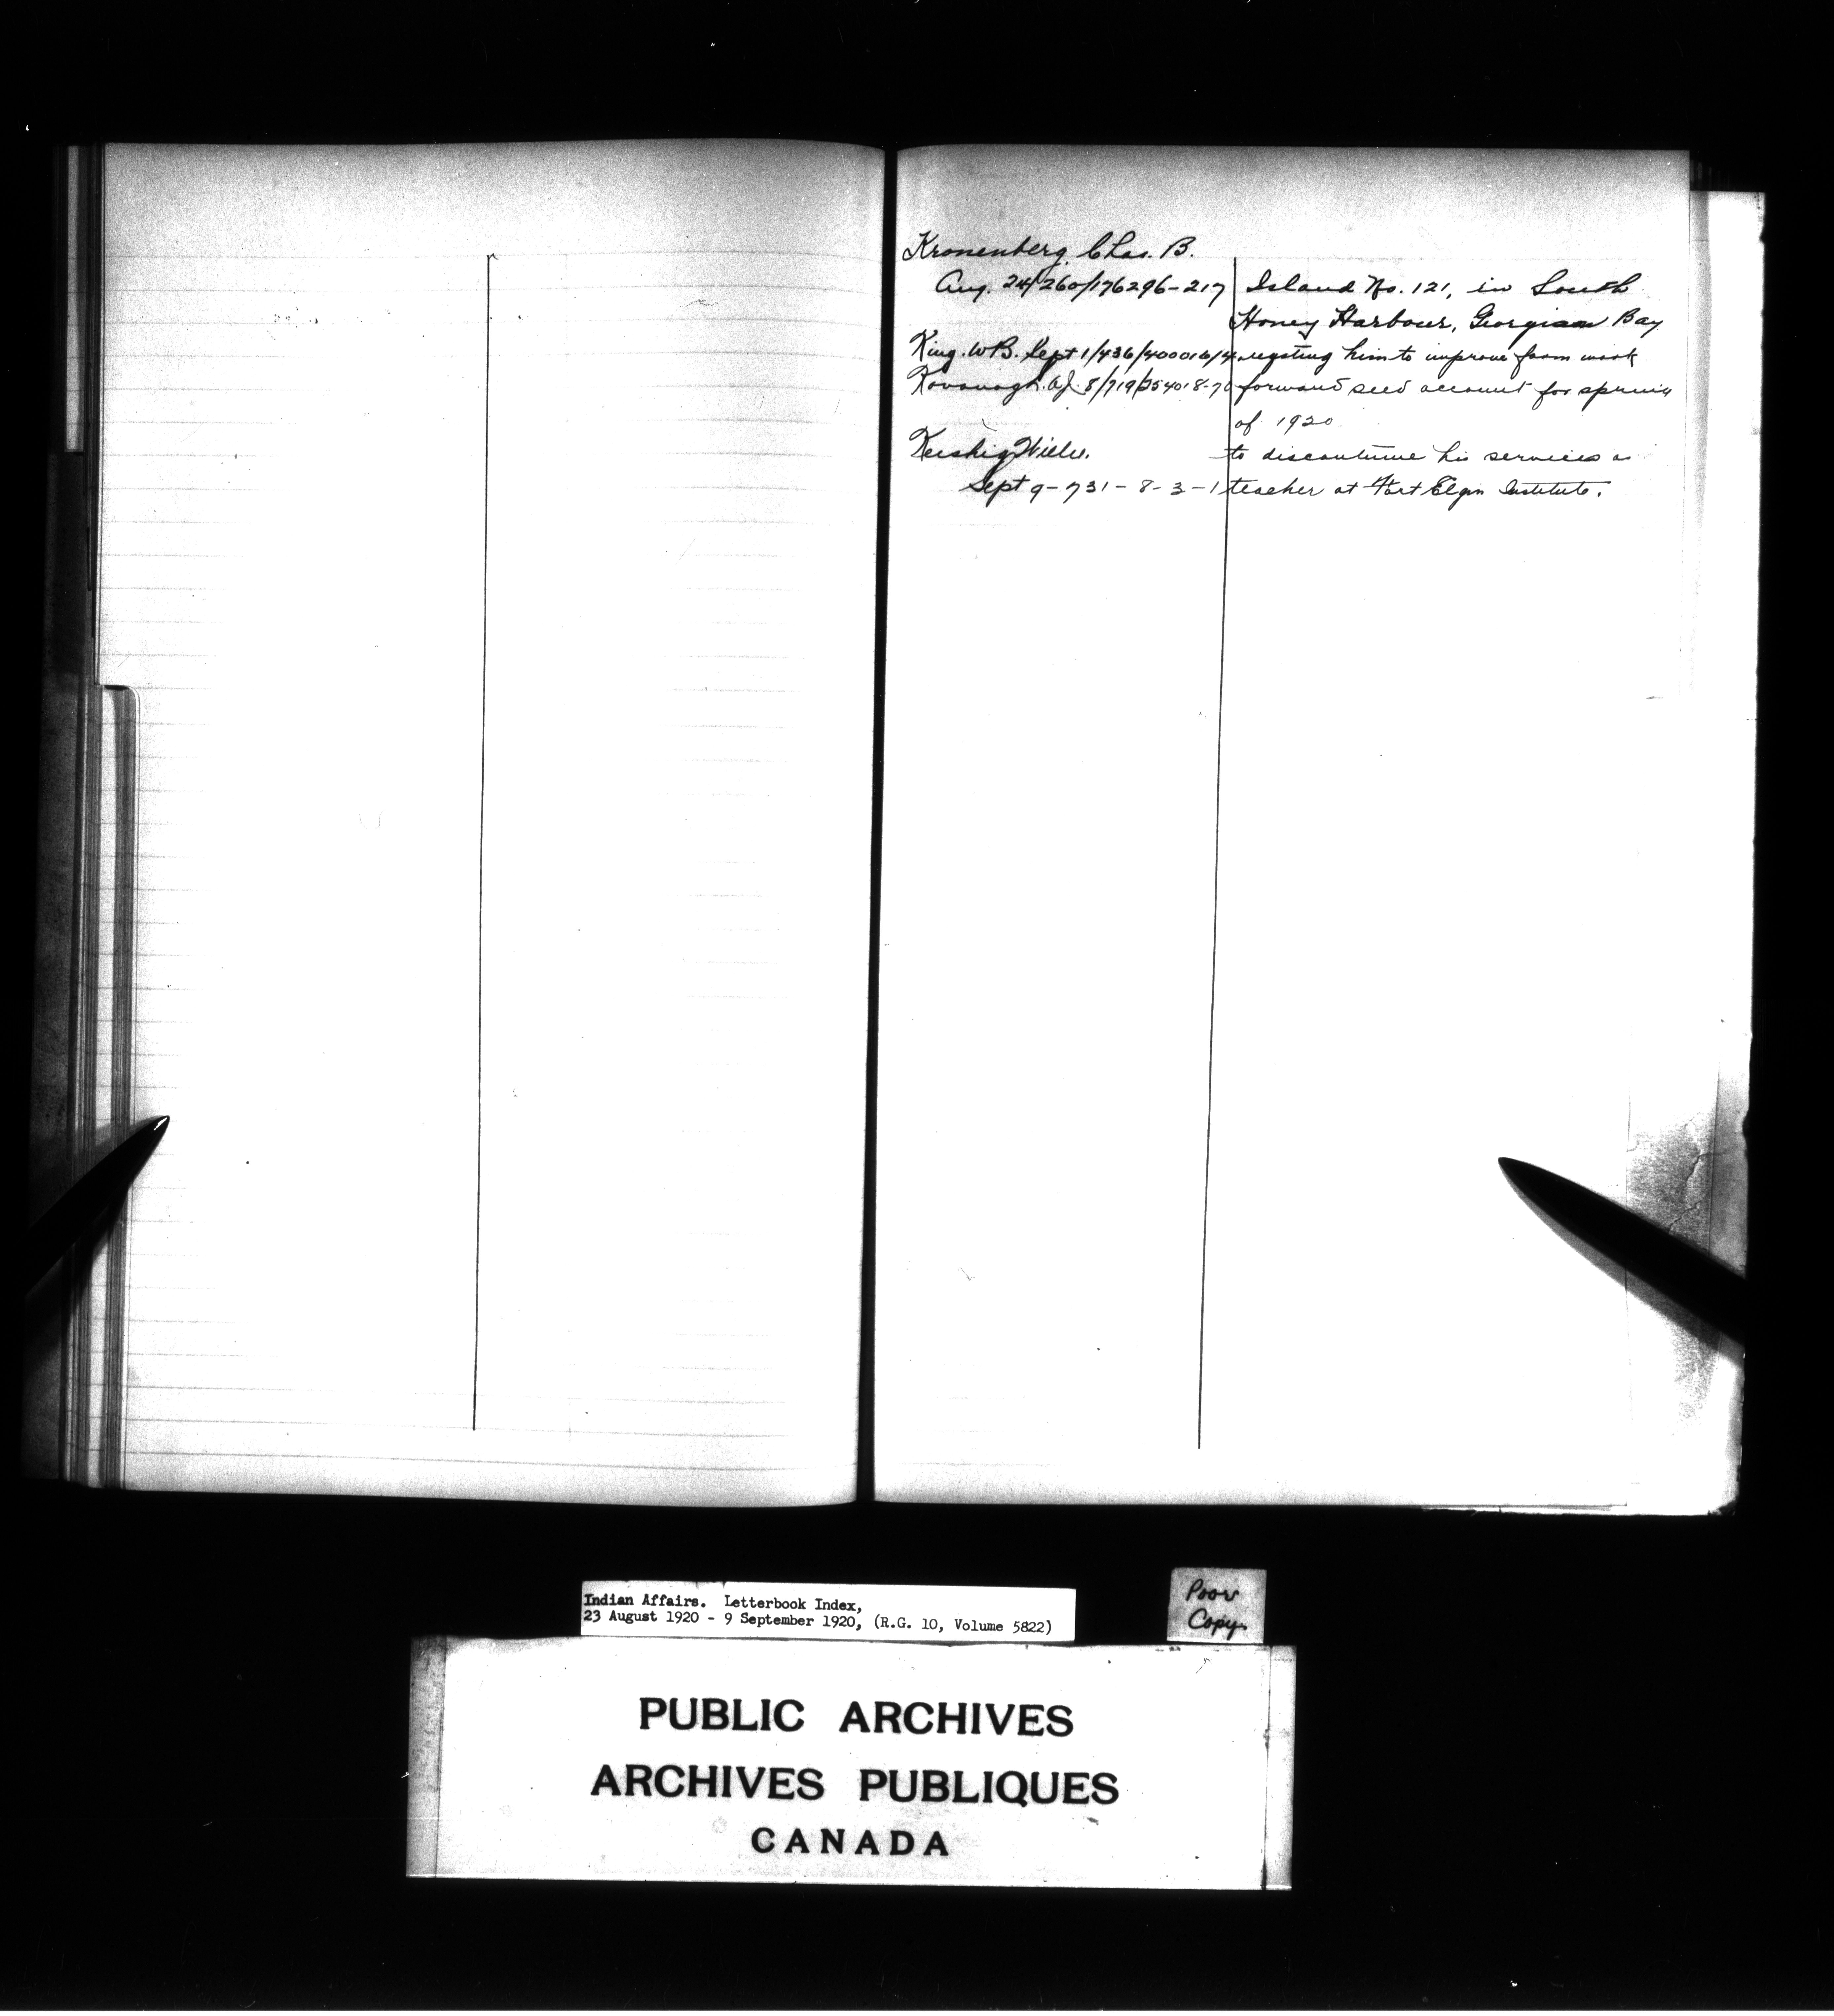 Kronenberg, Chas. B.
Aug. 24/260/176296-217 Island No. 121, in South
Honey Harbour, Georgian Bay
King. W.B. Sept 1/436/400016/4 him to improve farm work
Kavanagh. A.J. 8/719/254018-7 forward seed account for spring
of 1920
Keeshig to discontinue his services as
Sept 9-731-8-3-1 teacher at Fort Elgin Institute.
Indian Affairs. Letterbook Index,
23 August 1920 - 9 September 1920, (R.G. 10, Volume 5822)
Poor
Copy
PUBLIC ARCHIVES
ARCHIVES PUBLIQUES
CANADA